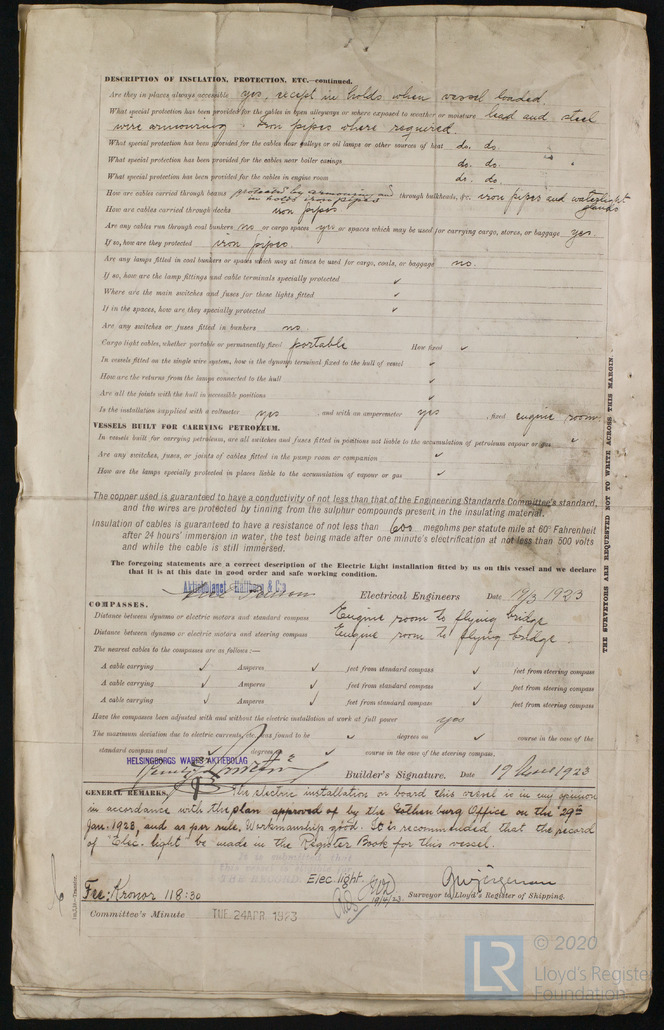 DESCRIPTION OF INSULATION, PROTECTION, ETC.—continued.
Are they in places always accessible yes, except in holds when vessel loaded.
What special protection has been provided for the cables in open alleyways or where exposed to weather or moisture lead and steel
wire armouring. Iron pipes where required.
What special protection has been provided for the cables near galleys or oil lamps or other sources of heat do. do.
What special protection has been provided for the cables near boiler casings do. do. " "
What special protection has been provided for the cables in engine room do. do. "
How are cables carried through beams protected by armouring and in holds iron pipes through bulkheads, &c. iron pipes and watertight glands
How are cables carried through decks iron pipes
Are any cables run through coal bunkers no or cargo spaces yes or spaces which may be used for carrying cargo, stores, or baggage yes.
If so, how are they protected iron pipes.
Are any lamps fitted in coal bunkers or spaces which may at times be used for cargo, coals, or baggage no.
If so, how are the lamp fittings and cable terminals specially protected ✓
Where are the main switches and fuses for these lights fitted ✓
If in the spaces, how are they specially protected ✓
Are any switches or fuses fitted in bunkers no
Cargo light cables, whether portable or permanently fixed portable How fixed ✓
In vessels fitted on the single wire system, how is the dynamo terminal fixed to the hull of vessel ✓
How are the returns from the lamps connected to the hull ✓
Are all the joints with the hull in accessible positions ✓
Is the installation supplied with a voltmeter yes , and with an amperemeter yes , fixed engine room.
VESSELS BUILT FOR CARRYING PETROLEUM.
In vessels built for carrying petroleum, are all switches and fuses fitted in positions not liable to the accumulation of petroleum vapour or gas ✓
Are any switches, fuses, or joints of cables fitted in the pump room or companion ✓
How are the lamps specially protected in places liable to the accumulation of vapour or gas ✓
The copper used is guaranteed to have a conductivity of not less than that of the Engineering Standards Committee's standard,
and the wires are protected by tinning from the sulphur compounds present in the insulating material.
Insulation of cables is guaranteed to have a resistance of not less than 600 megohms per statute mile at 60° Fahrenheit
after 24 hours' immersion in water, the test being made after one minute's electrification at not less than 500 volts
and while the cable is still immersed.
The foregoing statements are a correct description of the Electric Light installation fitted by us on this vessel and we declare
that it is at this date in good order and safe working condition.
Aktiebolaget Hallberg & Co
Electrical Engineers Date 19/3 1923
COMPASSES.
Distance between dynamo or electric motors and standard compass Engine room to flying bridge
Distance between dynamo or electric motors and steering compass Engine room to flying bridge.
The nearest cables to the compasses are as follows :—
A cable carrying ✓ Amperes ✓ feet from standard compass ✓ feet from steering compass
A cable carrying ✓ Amperes ✓ feet from standard compass ✓ feet from steering compass
A cable carrying ✓ Amperes ✓ feet from standard compass ✓ feet from steering compass
Have the compasses been adjusted with and without the electric installation at work at full power yes
The maximum deviation due to electric currents, etc. was found to be ✓ degrees on ✓ course in the case of the
standard compass and ✓ degrees on ✓ course in the case of the steering compass.
HELSINGBORGS WARFS AKTIEBOLAG
Builder's Signature. Date 19 1923
GENERAL REMARKS. The electric installation on board this vessel is in my opinion
in accordance with the plan approved of by the Gothenburg Office on the 29th
Jan. 1923, and as per rule, Workmanship good. It is recommended that the record
of "Elec. light" be made in the Register Book for this vessel.
Elec. light.
19/4/23.
Fee: Kronor 118:30
Surveyor to Lloyd's Register of Shipping.
Committee's Minute TUE. 24 APR. 1923
THE SURVEYORS ARE REQUESTED NOT TO WRITE ACROSS THIS MARGIN.
© 2020
Lloyd's Register
Foundation
LR